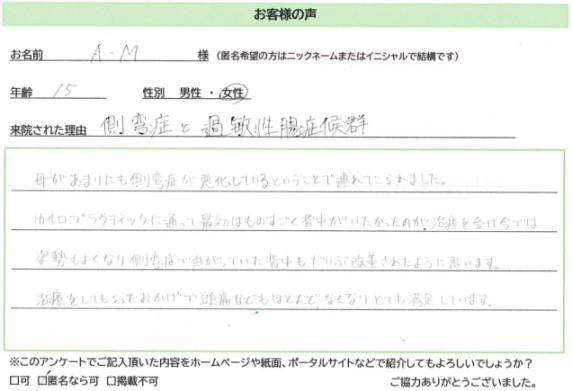 お客様の声
お名前 A・M 様 (匿名希望の方はニックネームまたはイニシャルで結構です)
年齢 15 性別 男性・女性
来院された理由 側弯症と過敏性腸症候群
母があまりにも側弯症が悪化しているということで連れてこられました。
カイロプラクティックに通って最初はものすごく背中がいたかったのが、治療を受け今では
姿勢もよくなり側弯症で曲がっていた背中もだいぶ改善されたように思います。
治療をしてもらったおかげで頭痛などもほとんどなくなりとても満足しています。
※このアンケートでご記入頂いた内容をホームページや紙面、ポータルサイトなどで紹介してもよろしいでしょうか?
□可 ☑匿名なら可 □掲載不可 ご協力ありがとうございました。